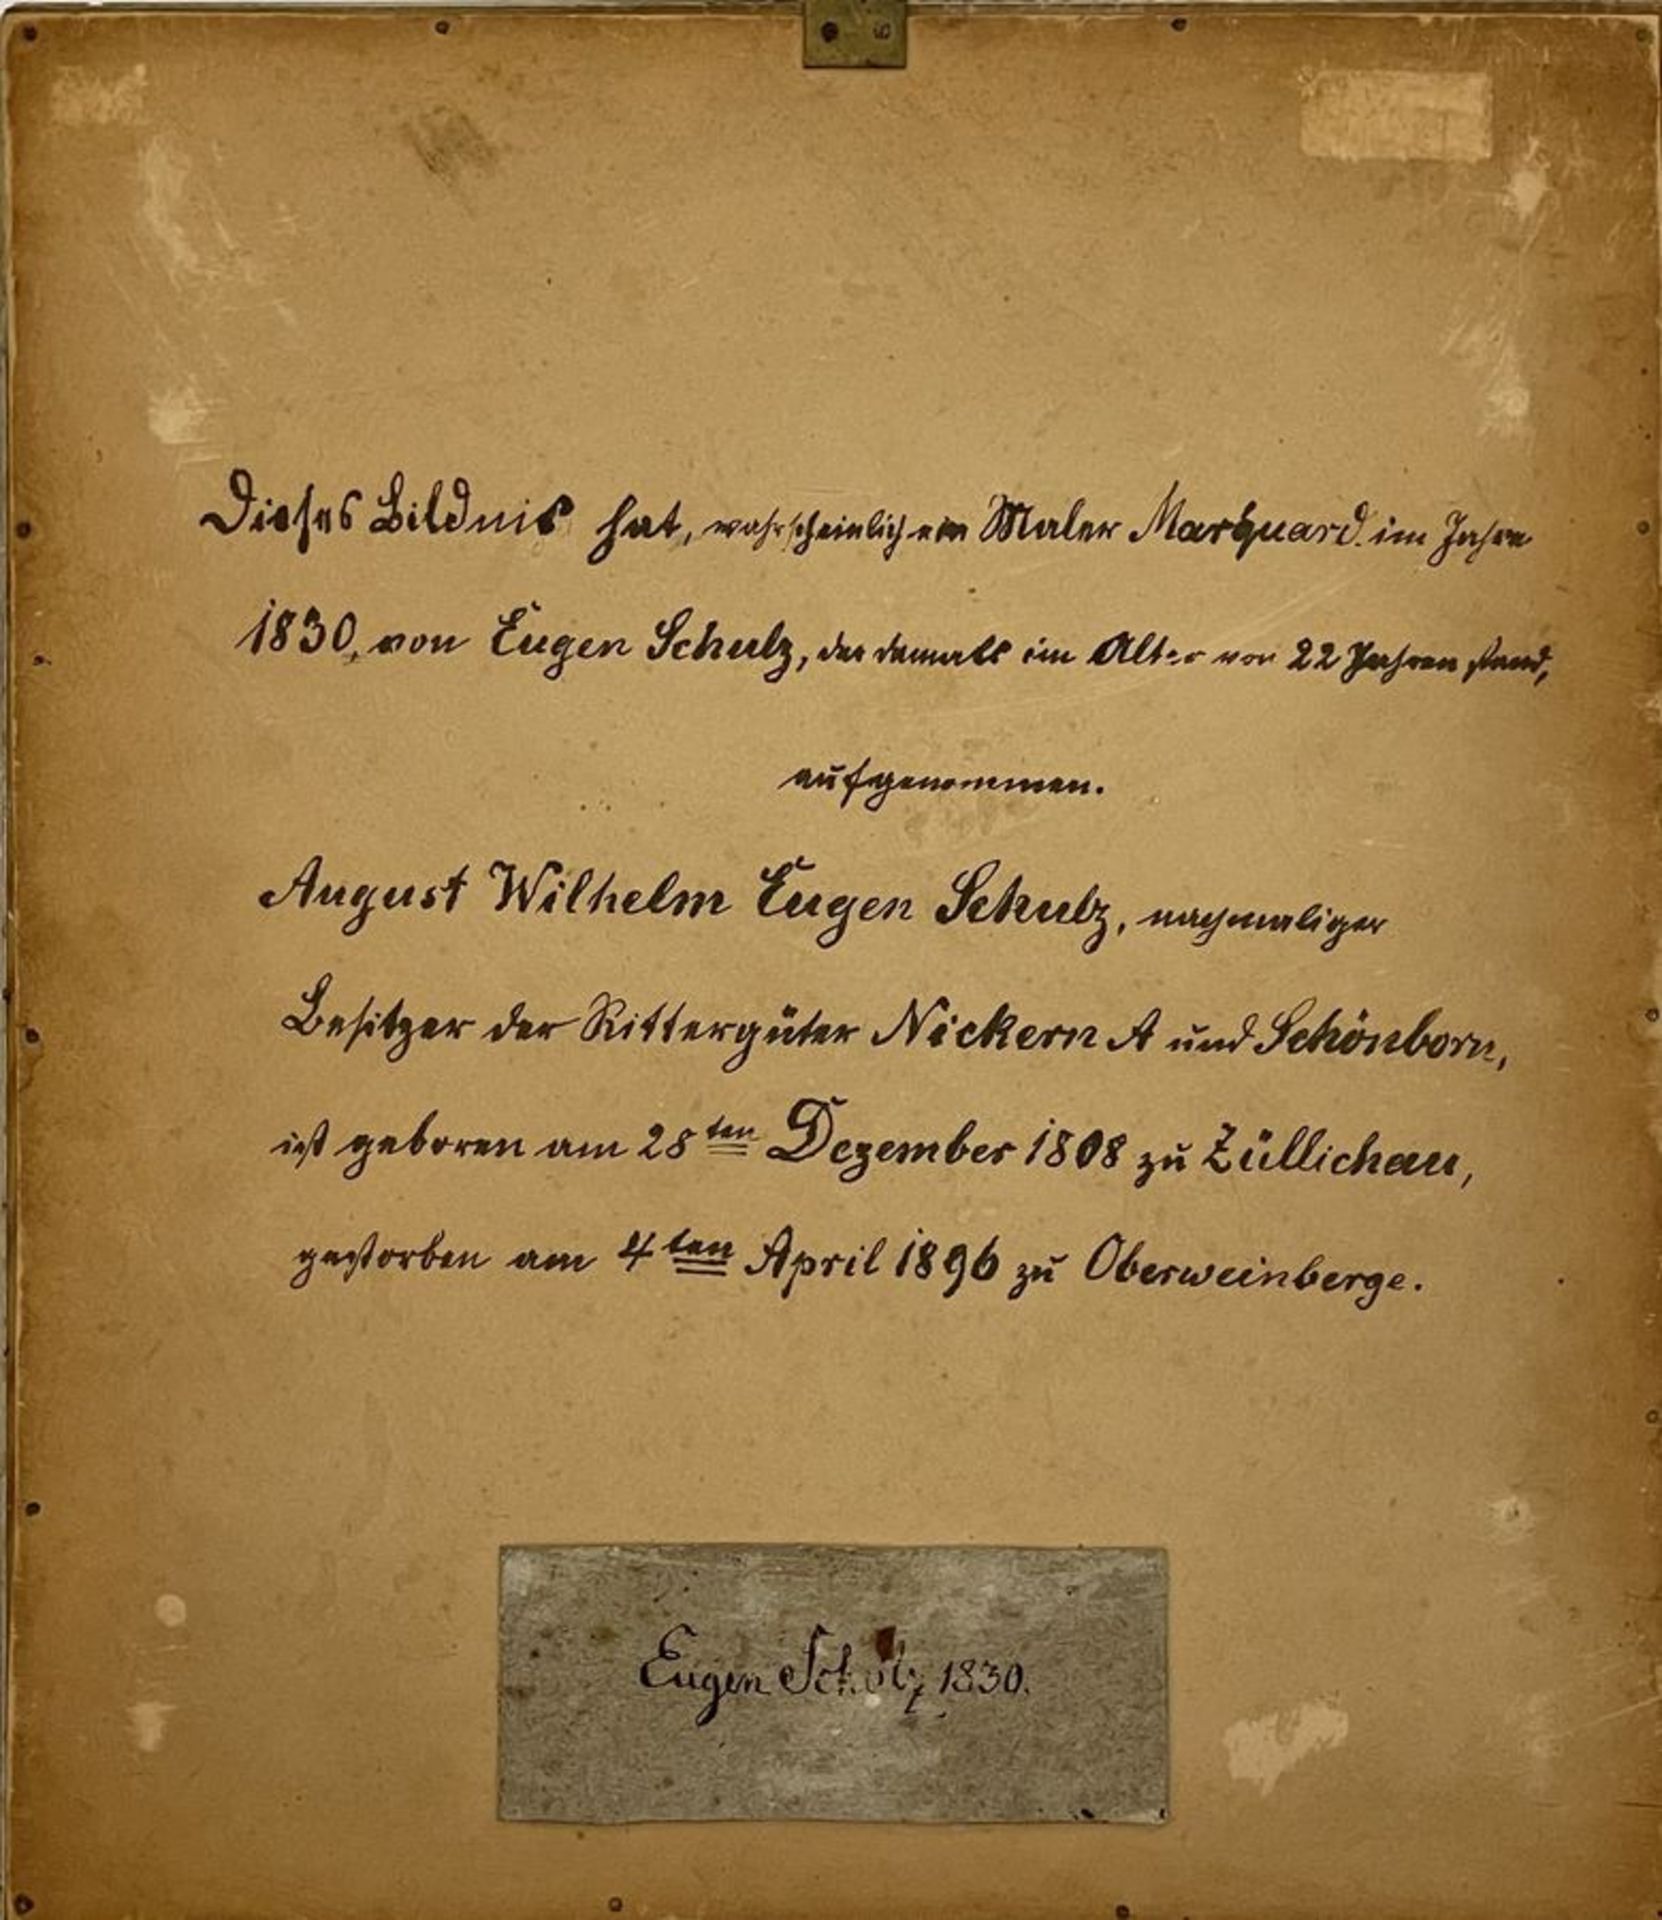 Dieses Bildnis hat, wahrscheinlich ein Maler Marquard im Jahre
1830, von Eugen Schulz, der damals im Alter von 22 Jahren stand,
aufgenommen.
August Wilhelm Eugen Schulz, nachmaliger
Besitzer der Rittergüter Nickern A und Schönborn,
ist geboren am 28ten Dezember 1808 zu Züllichau,
gestorben am 4ten April 1896 zu Oberweinberge.
Eugen 1830.